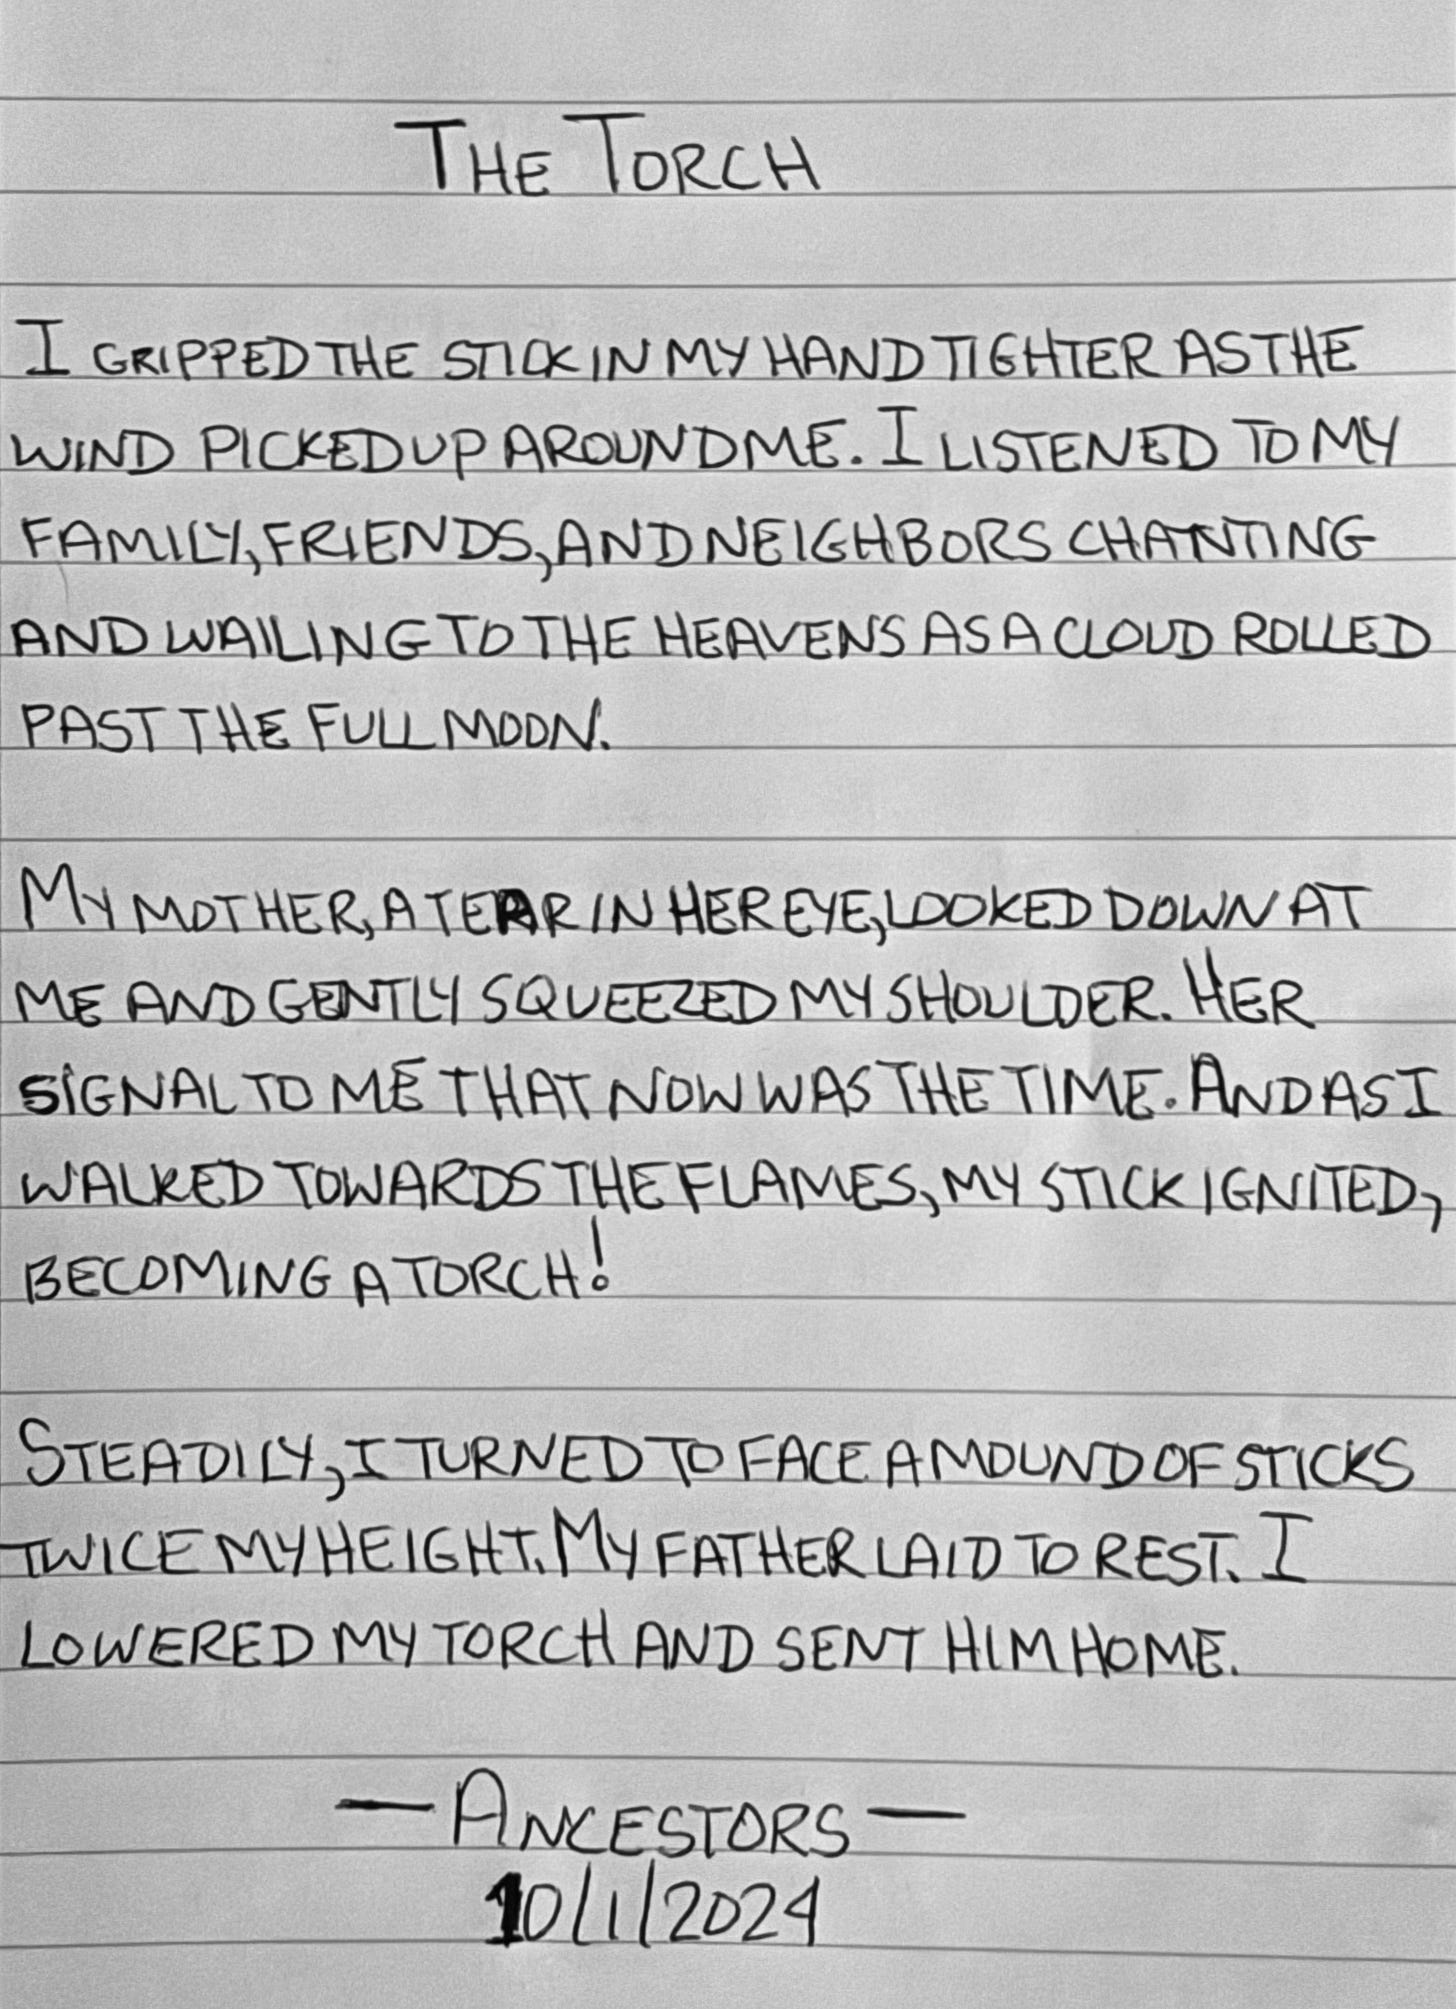 THE TORCH
I GRIPPED THE STICK IN MY HAND TIGHTER AS THE
WIND PICKED UP AROUND ME. I LISTENED TO MY
FAMILY, FRIENDS, AND NEIGHBORS CHANTING
AND WAILING TO THE HEAVENS AS A CLOUD ROLLED
PAST THE FULL MOON.
MY MOTHER, A TEAR IN HER EYE, LOOKED DOWN AT
ME AND GENTLY SQUEEZED MY SHOULDER. HER
SIGNAL TO ME THAT NOW WAS THE TIME. AND AS I
WALKED TOWARDS THE FLAMES, MY STICK IGNITED,
BECOMING A TORCH!
STEADILY, I TURNED TO FACE A MOUND OF STICKS
TWICE MY HEIGHT. MY FATHER LAID TO REST. I
LOWERED MY TORCH AND SENT HIM HOME.
— ANCESTORS —
10/1/2024